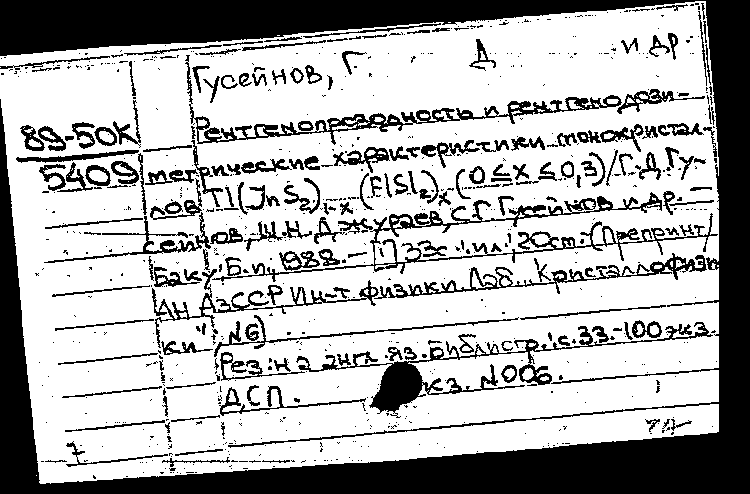 Гусейнов, Г. Д. и др.
89-50К
5409
Рентгенопроводность и рентгенодози-
метрические характеристики монокристал-
лов Tl(InS₂)₁₋ₓ (FeS₂)ₓ (0≤X≤0,3)/Г.Д.Гу-
сейнов, Ш.Н. Джураев, С.Г. Гусейнов и др. —
Баку: Б.и., 1988. — [1], 33с.: ил.; 20см. — (Препринт/
АН АзССР, Ин-т физики. Лаб... Кристаллофизи
ки"; №6)
Рез: на англ. яз. Библиогр.: с.33. - 100 экз.
ДСП. кз. №006.
7